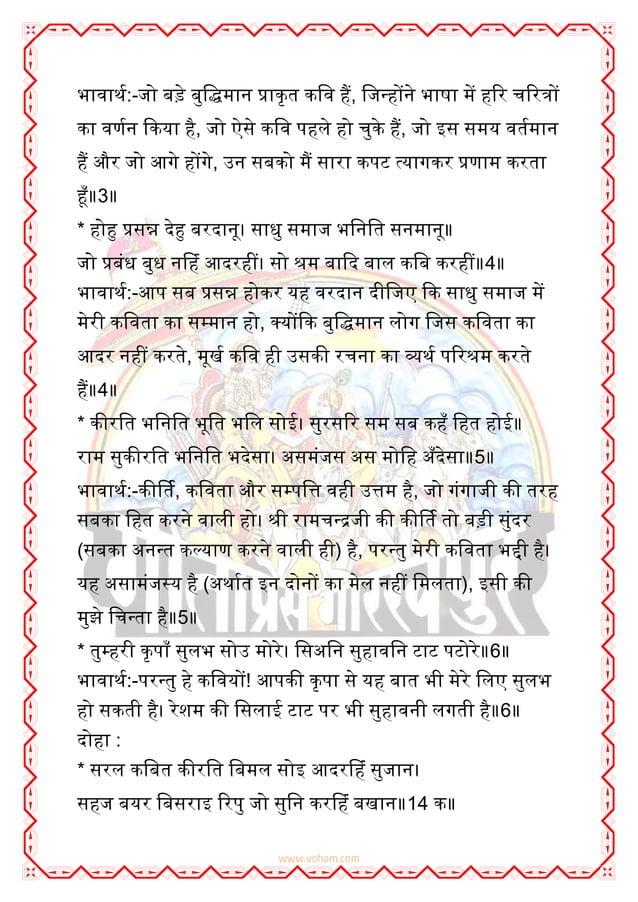 भावार्थ:-जो बड़े बुद्धिमान प्राकृत कवि हैं, जिन्होंने भाषा में हरि चरित्रों
का वर्णन किया है, जो ऐसे कवि पहले हो चुके हैं, जो इस समय वर्तमान
हैं और जो आगे होंगे, उन सबको मैं सारा कपट त्यागकर प्रणाम करता
हूँ॥3॥
* होहु प्रसन्न देहु बरदानू। साधु समाज भनिति सनमानू॥
जो प्रबंध बुध नहिं आदरहीं। सो श्रम बादि बाल कबि करहीं॥4॥
भावार्थ:-आप सब प्रसन्न होकर यह वरदान दीजिए कि साधु समाज में
मेरी कविता का सम्मान हो, क्योंकि बुद्धिमान लोग जिस कविता का
आदर नहीं करते, मूर्ख कवि ही उसकी रचना का व्यर्थ परिश्रम करते
हैं॥4॥
* कीरति भनिति भूति भलि सोई। सुरसरि सम सब कहँ हित होई॥
राम सुकीरति भनिति भदेसा। असमंजस अस मोहि अँदेसा॥5॥
भावार्थ:-कीर्ति, कविता और सम्पत्ति वही उत्तम है, जो गंगाजी की तरह
सबका हित करने वाली हो। श्री रामचन्द्रजी की कीर्ति तो बड़ी सुंदर
(सबका अनन्त कल्याण करने वाली ही) है, परन्तु मेरी कविता भद्दी है।
यह असामंजस्य है (अर्थात इन दोनों का मेल नहीं मिलता), इसी की
मुझे चिन्ता है॥5॥
* तुम्हरी कृपाँ सुलभ सोउ मोरे। सिअनि सुहावनि टाट पटोरे॥6॥
भावार्थ:-परन्तु हे कवियों! आपकी कृपा से यह बात भी मेरे लिए सुलभ
हो सकती है। रेशम की सिलाई टाट पर भी सुहावनी लगती है॥6॥
दोहा :
* सरल कबित कीरति बिमल सोइ आदरहिं सुजान।
सहज बयर बिसराइ रिपु जो सुनि करहिं बखान॥14 क॥
गीताप्रेस गोरखपुर
www.voham.com